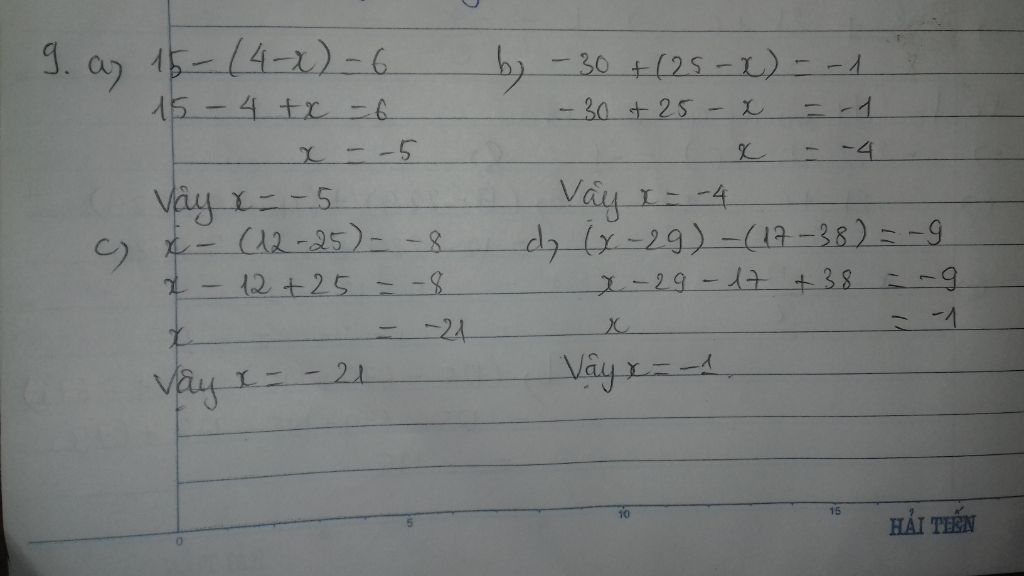 9. a, 15 - (4 - x) = 6
15 - 4 + x = 6
x = -5
Vậy x = -5
b, -30 + (25 - x) = -1
-30 + 25 - x = -1
x = -4
Vậy x = -4
c, x - (12 - 25) = -8
x - 12 + 25 = -8
x = -21
Vậy x = -21
d, (x - 29) - (17 - 38) = -9
x - 29 - 17 + 38 = -9
x = -1
Vậy x = -1.
0 5 10 15
HẢI TIẾN